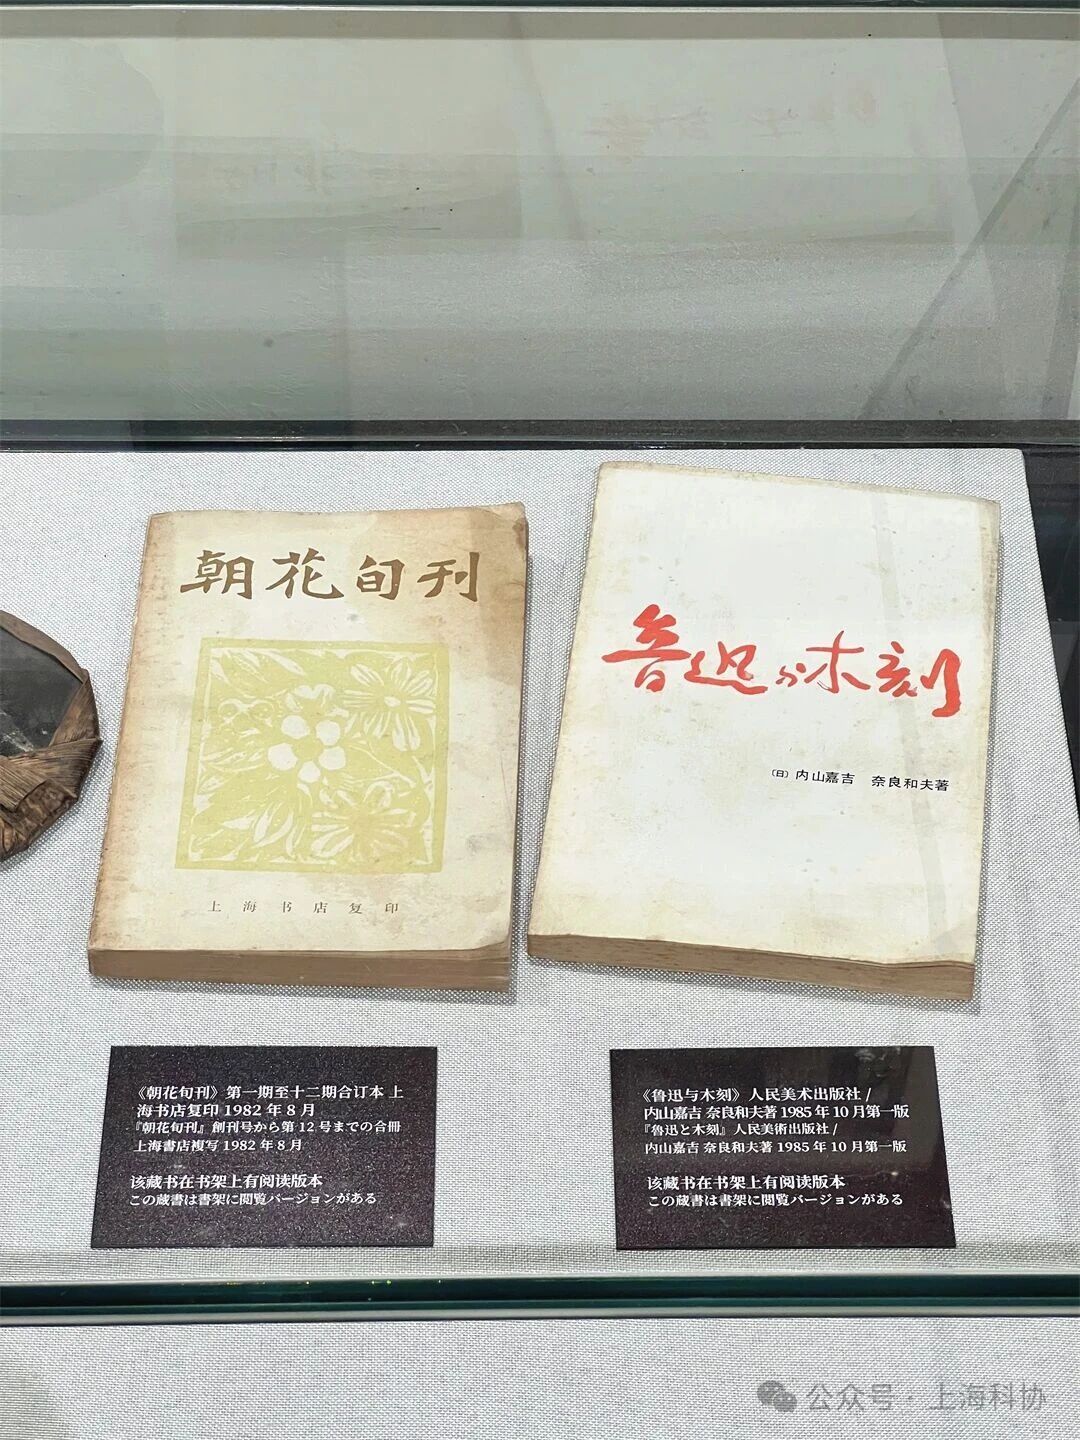 朝花旬刊
上海书店复印
鲁迅与木刻
(日) 内山嘉吉 奈良和夫著
《朝花旬刊》第一期至十二期合订本 上
海书店复印 1982 年 8 月
『朝花旬刊』創刊号から第 12 号までの合冊
上海書店複写 1982 年 8 月
该藏书在书架上有阅读版本
この蔵書は書架に閲覧バージョンがある
《鲁迅与木刻》人民美术出版社 /
内山嘉吉 奈良和夫著 1985 年 10 月第一版
『魯迅と木刻』人民美術出版社 /
内山嘉吉 奈良和夫著 1985 年 10 月第一版
该藏书在书架上有阅读版本
この蔵書は書架に閲覧バージョンがある
公众号 · 上海科协